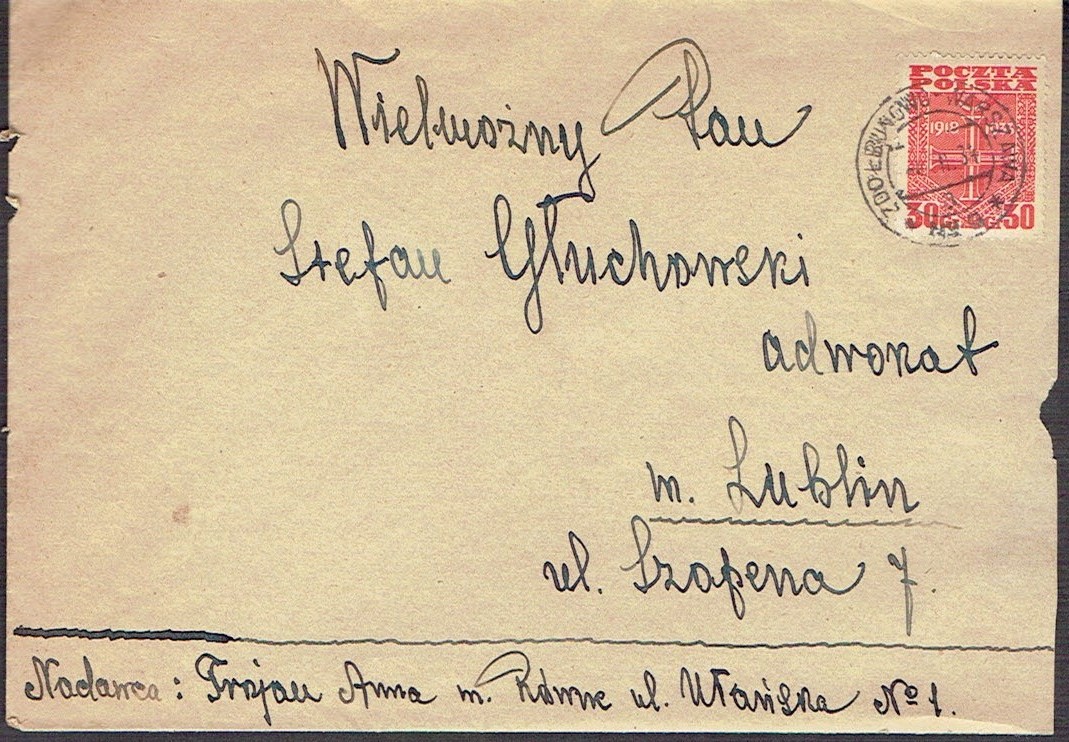 POCZTA
POLSKA
1918 1933
30 30
ZDOŁBUNOWO - WARSZAWA
Wielmożny Pan
Stefan Głuchowski
adwokat
m. Lublin
ul. Szopena 7.
Nadawca: Trojan Anna m. Równe ul. Ułańska № 1.